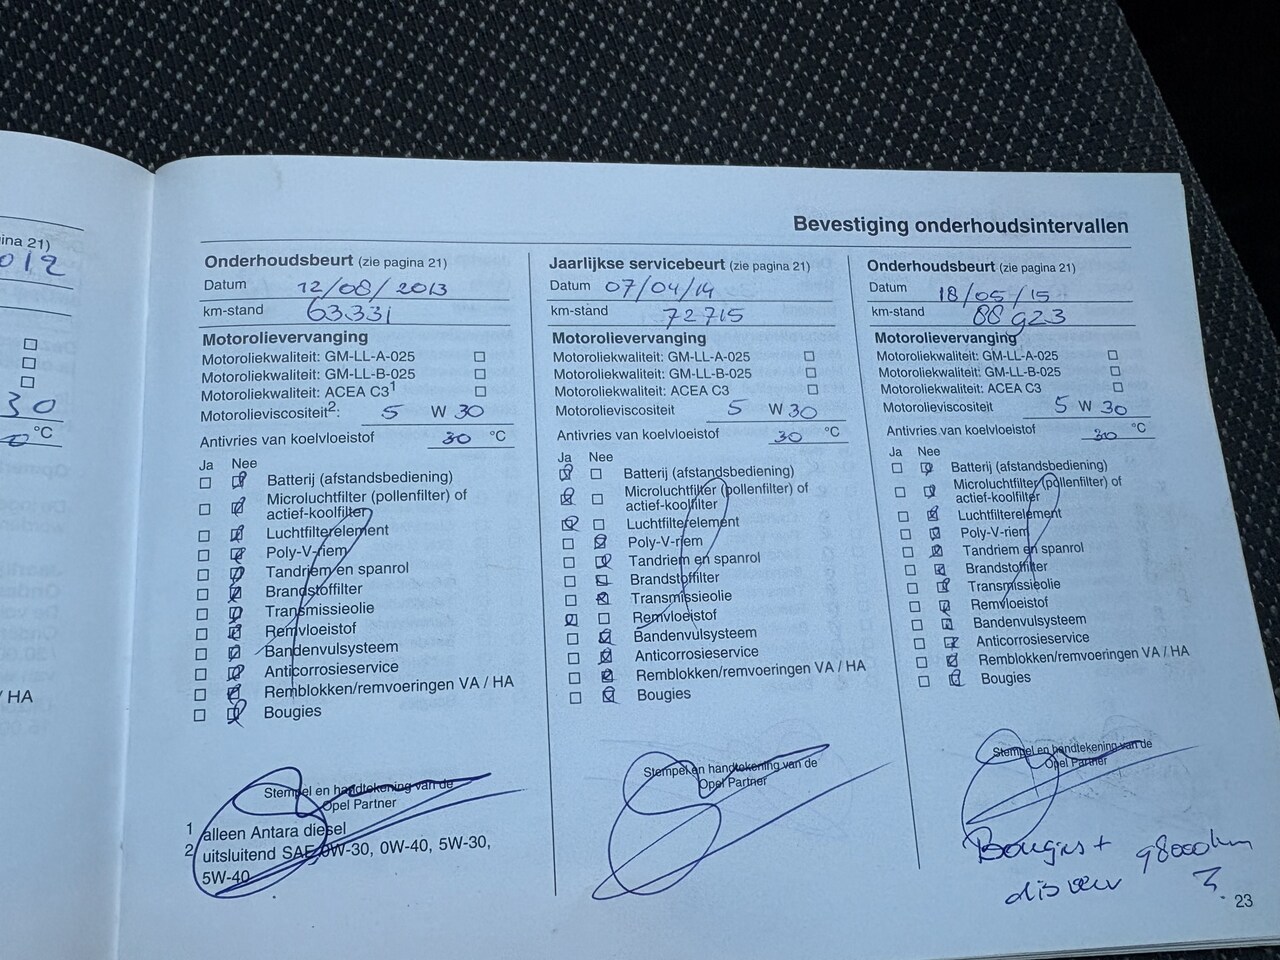 ina 21)
012
30
°C
/ HA
Bevestiging onderhoudsintervallen
Onderhoudsbeurt (zie pagina 21)
Datum 12/08/2013
km-stand 63331
Motorolievervanging
Motoroliekwaliteit: GM-LL-A-025
Motoroliekwaliteit: GM-LL-B-025
Motoroliekwaliteit: ACEA C3¹
Motorolieviscositeit²: 5 W 30
Antivries van koelvloeistof 30 °C
Ja Nee
Batterij (afstandsbediening)
Microluchtfilter (pollenfilter) of
actief-koolfilter
Luchtfilterelement
Poly-V-riem
Tandriem en spanrol
Brandstoffilter
Transmissieolie
Remvloeistof
Bandenvulsysteem
Anticorrosieservice
Remblokken/remvoeringen VA / HA
Bougies
Stempel en handtekening van de
Opel Partner
1 alleen Antara diesel
2 uitsluitend SAE 0W-30, 0W-40, 5W-30,
5W-40
Jaarlijkse servicebeurt (zie pagina 21)
Datum 07/04/14
km-stand 72715
Motorolievervanging
Motoroliekwaliteit: GM-LL-A-025
Motoroliekwaliteit: GM-LL-B-025
Motoroliekwaliteit: ACEA C3
Motorolieviscositeit 5 W 30
Antivries van koelvloeistof 30 °C
Ja Nee
Batterij (afstandsbediening)
Microluchtfilter (pollenfilter) of
actief-koolfilter
Luchtfilterelement
Poly-V-riem
Tandriem en spanrol
Brandstoffilter
Transmissieolie
Remvloeistof
Bandenvulsysteem
Anticorrosieservice
Remblokken/remvoeringen VA / HA
Bougies
Stempel en handtekening van de
Opel Partner
Onderhoudsbeurt (zie pagina 21)
Datum 18/05/15
km-stand 88923
Motorolievervanging
Motoroliekwaliteit: GM-LL-A-025
Motoroliekwaliteit: GM-LL-B-025
Motoroliekwaliteit: ACEA C3
Motorolieviscositeit 5 W 30
Antivries van koelvloeistof 30 °C
Ja Nee
Batterij (afstandsbediening)
Microluchtfilter (pollenfilter) of
actief-koolfilter
Luchtfilterelement
Poly-V-riem
Tandriem en spanrol
Brandstoffilter
Transmissieolie
Remvloeistof
Bandenvulsysteem
Anticorrosieservice
Remblokken/remvoeringen VA / HA
Bougies
Stempel en handtekening van de
Opel Partner
Bougies + 98000km
?
23